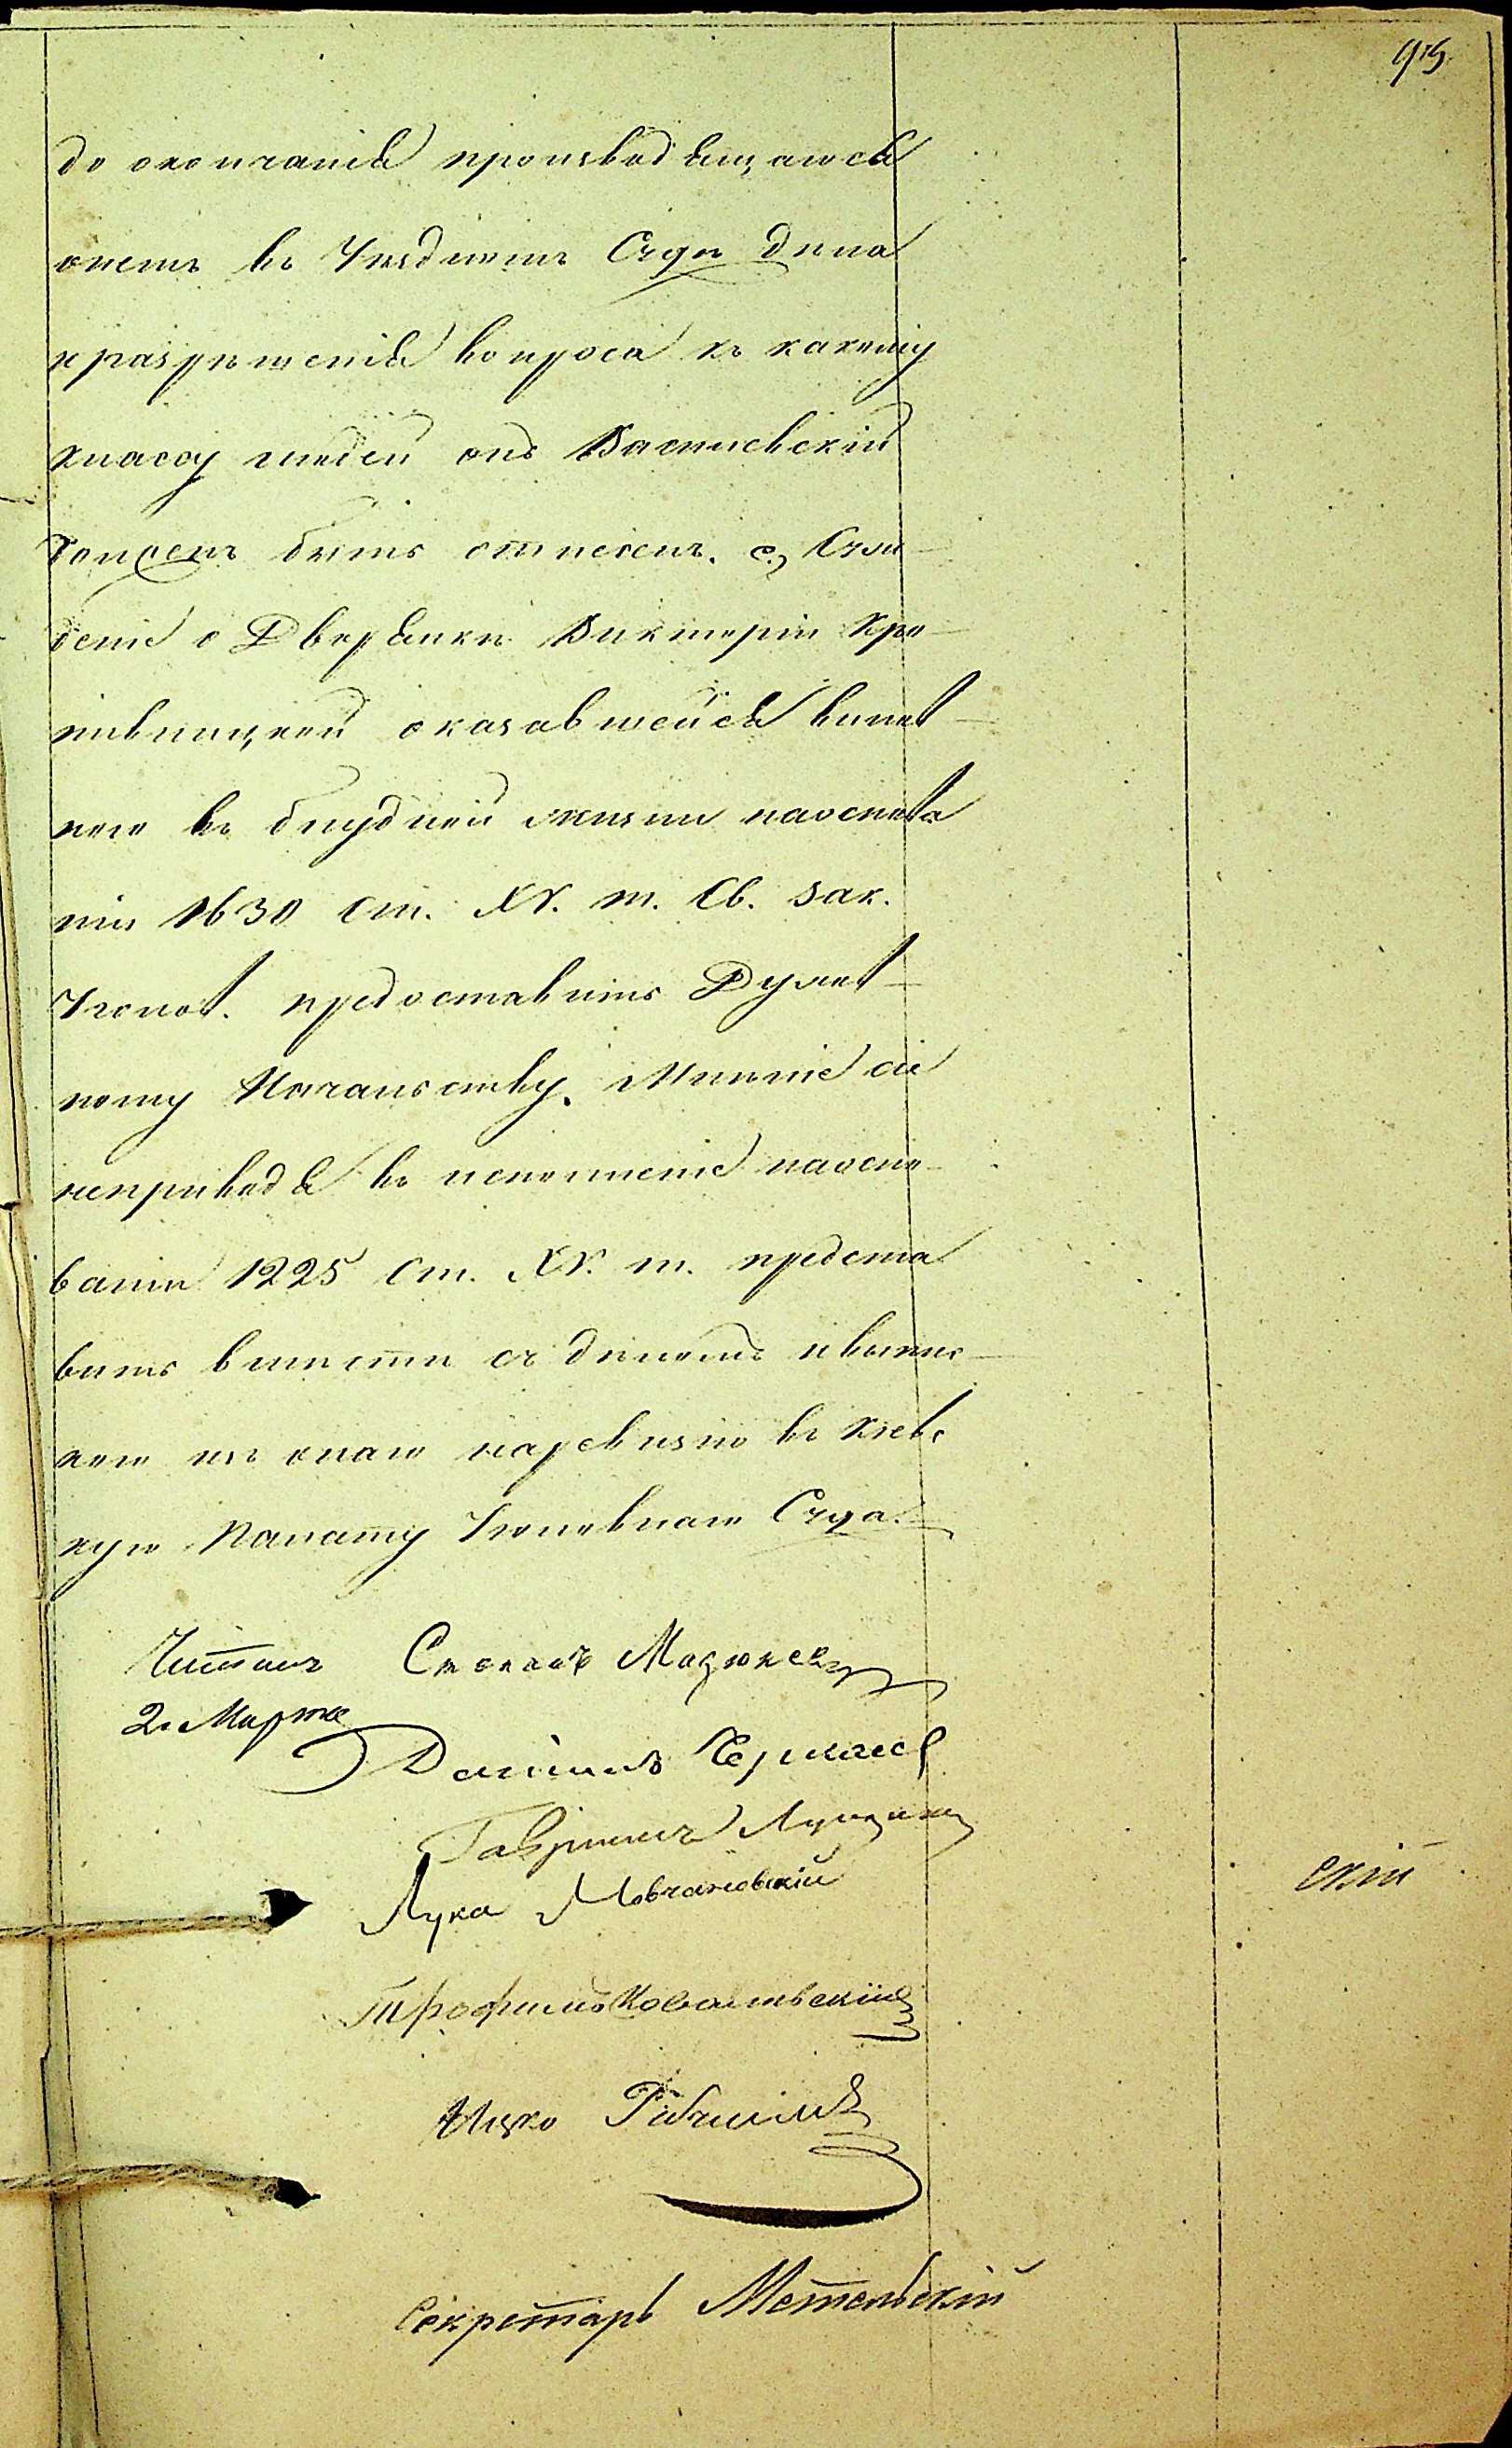 до окончанія производящагося
о немъ въ Уездномъ Суде дела
и разрешенія вопроса къ какому
классу людей онъ Василевскій
долженъ быть отнесенъ. е, Суж-
деніе о Дворянке Викторіи Кро-
пивницкой оказавшейся винов-
ною въ блудной жизни наоснова
ніи 1630 ст. XV. т. Св. Зак.
Уголов. предоставить Духов-
ному Начальству. Мненіе сіе
неприводя въ исполненіе наосно-
ваніи 1225 ст. XV. т. предста
вить вместе съ деломъ и выпис-
кою изъ онаго наревизію въ Кіевс
кую Палату Уголовнаго Суда.
Читалъ
2. Марта
Даніилъ
Гавріилъ
Лука Мовчановскій
скій
Трофимъ Ковальскій
Ицко
Секретарь Метельскій